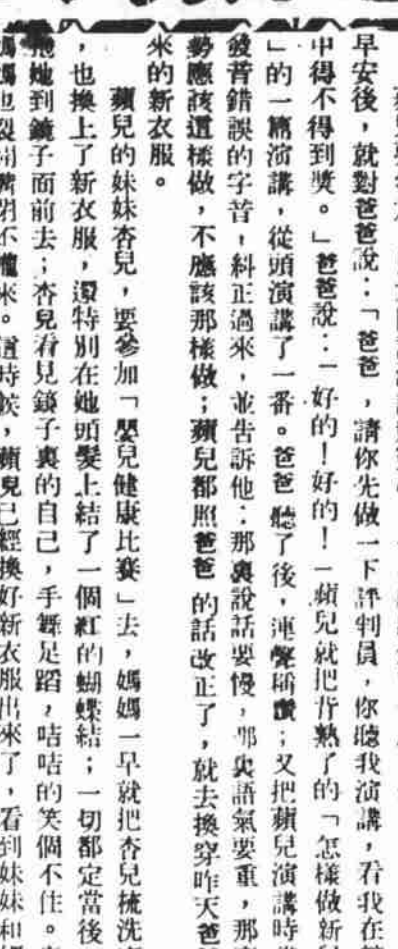 早安後，就對爸爸說：「爸爸，請你先做一下評判員，你聽我演講，看我在
中得不得到獎。」爸爸說：「好的！好的！」蘋兒就把背熟了的「怎樣做新兒
」的一篇演講，從頭演講了一番。爸爸聽了後，連聲稱讚；又把蘋兒演講時
發音錯誤的字音，糾正過來，並告訴他：那裏說話要慢，那裏語氣要重，那
勢應該這樣做，不應該那樣做；蘋兒都照爸爸的話改正了，就去換穿昨天爸
來的新衣服。
蘋兒的妹妹杏兒，要參加「嬰兒健康比賽」去，媽媽一早就把杏兒梳洗
，也換上了新衣服，還特別在她頭髮上結了一個紅的蝴蝶結；一切都定當後
抱她到鏡子面前去；杏兒看見鏡子裏的自己，手舞足蹈，咭咭的笑個不住。
媽媽也裂開嘴不攏來。這時候，蘋兒已經換好新衣服出來了，看到妹妹和